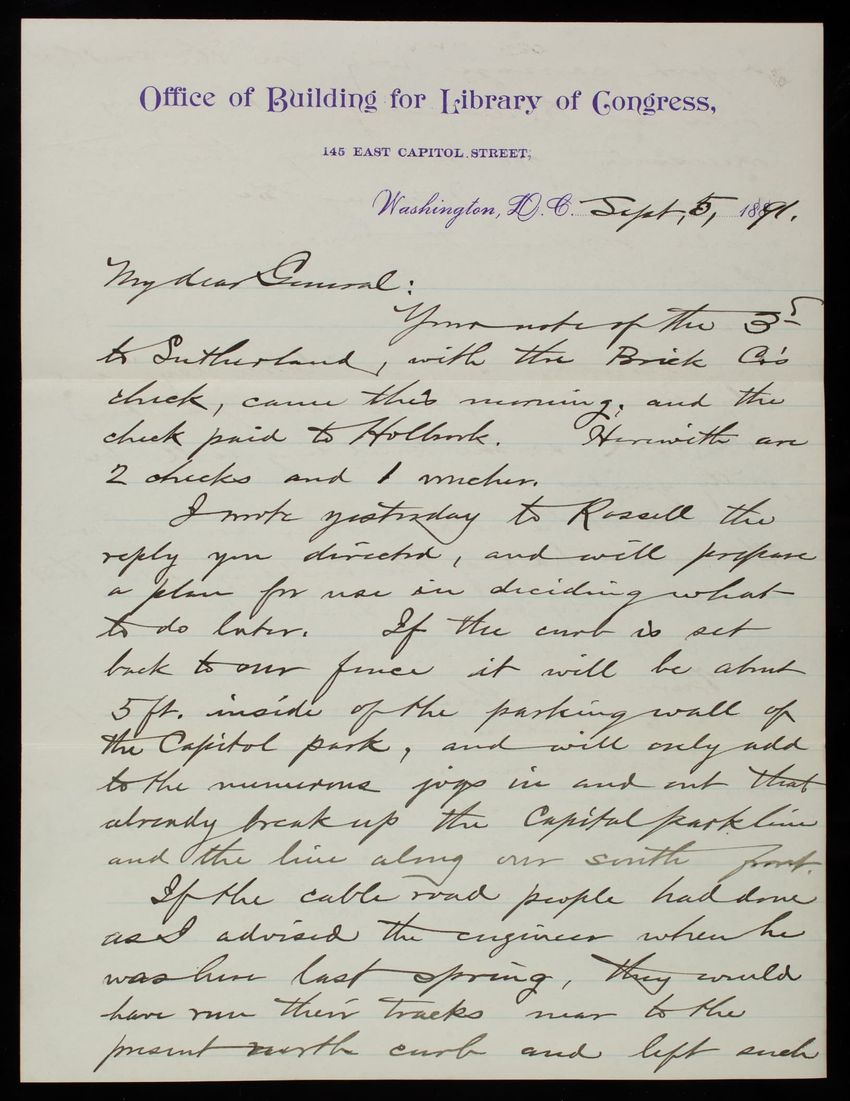 Office of Building for Library of Congress,
145 EAST CAPITOL STREET,
Washington, D.C. Sept, 5, 1891.
My dear General:
Your note of the 3d
to Sutherland, with the Brick Co's
check, came this morning, and the
check paid to Holbrook. Herewith are
2 checks and 1 voucher.
I wrote yesterday to Rossell the
reply you directed, and will prepare
a plan for use in deciding what
to do later. If the curb is set
back to our fence it will be about
5 ft. inside of the parking wall of
the Capitol park, and will only add
to the numerous jogs in and out that
already break up the Capitol park line
and the line along our south front.
If the cable road people had done
as I advised the engineer when he
was here last spring, they would
have run their tracks near to the
present north curb and left such